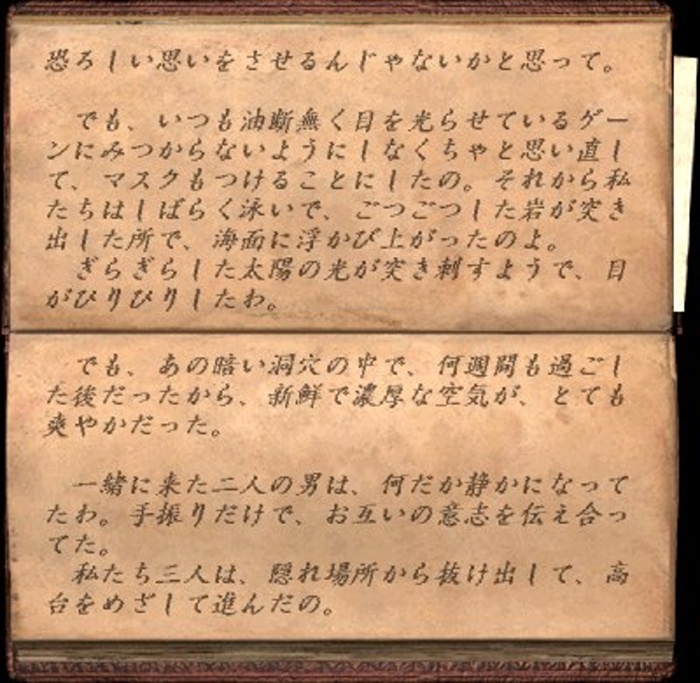 恐ろしい思いをさせるんじゃないかと思って。
でも、いつも油断無く目を光らせているゲー
ンにみつからないようにしなくちゃと思い直し
て、マスクもつけることにしたの。それから私
たちはしばらく泳いで、ごつごつした岩が突き
出した所で、海面に浮かび上がったのよ。
ぎらぎらした太陽の光が突き刺すようで、目
がひりひりしたわ。
でも、あの暗い洞穴の中で、何週間も過ごし
た後だったから、新鮮で濃厚な空気が、とても
爽やかだった。
一緒に来た二人の男は、何だか静かになって
たわ。手振りだけで、お互いの意志を伝え合っ
てた。
私たち三人は、隠れ場所から抜け出して、高
台をめざして進んだの。